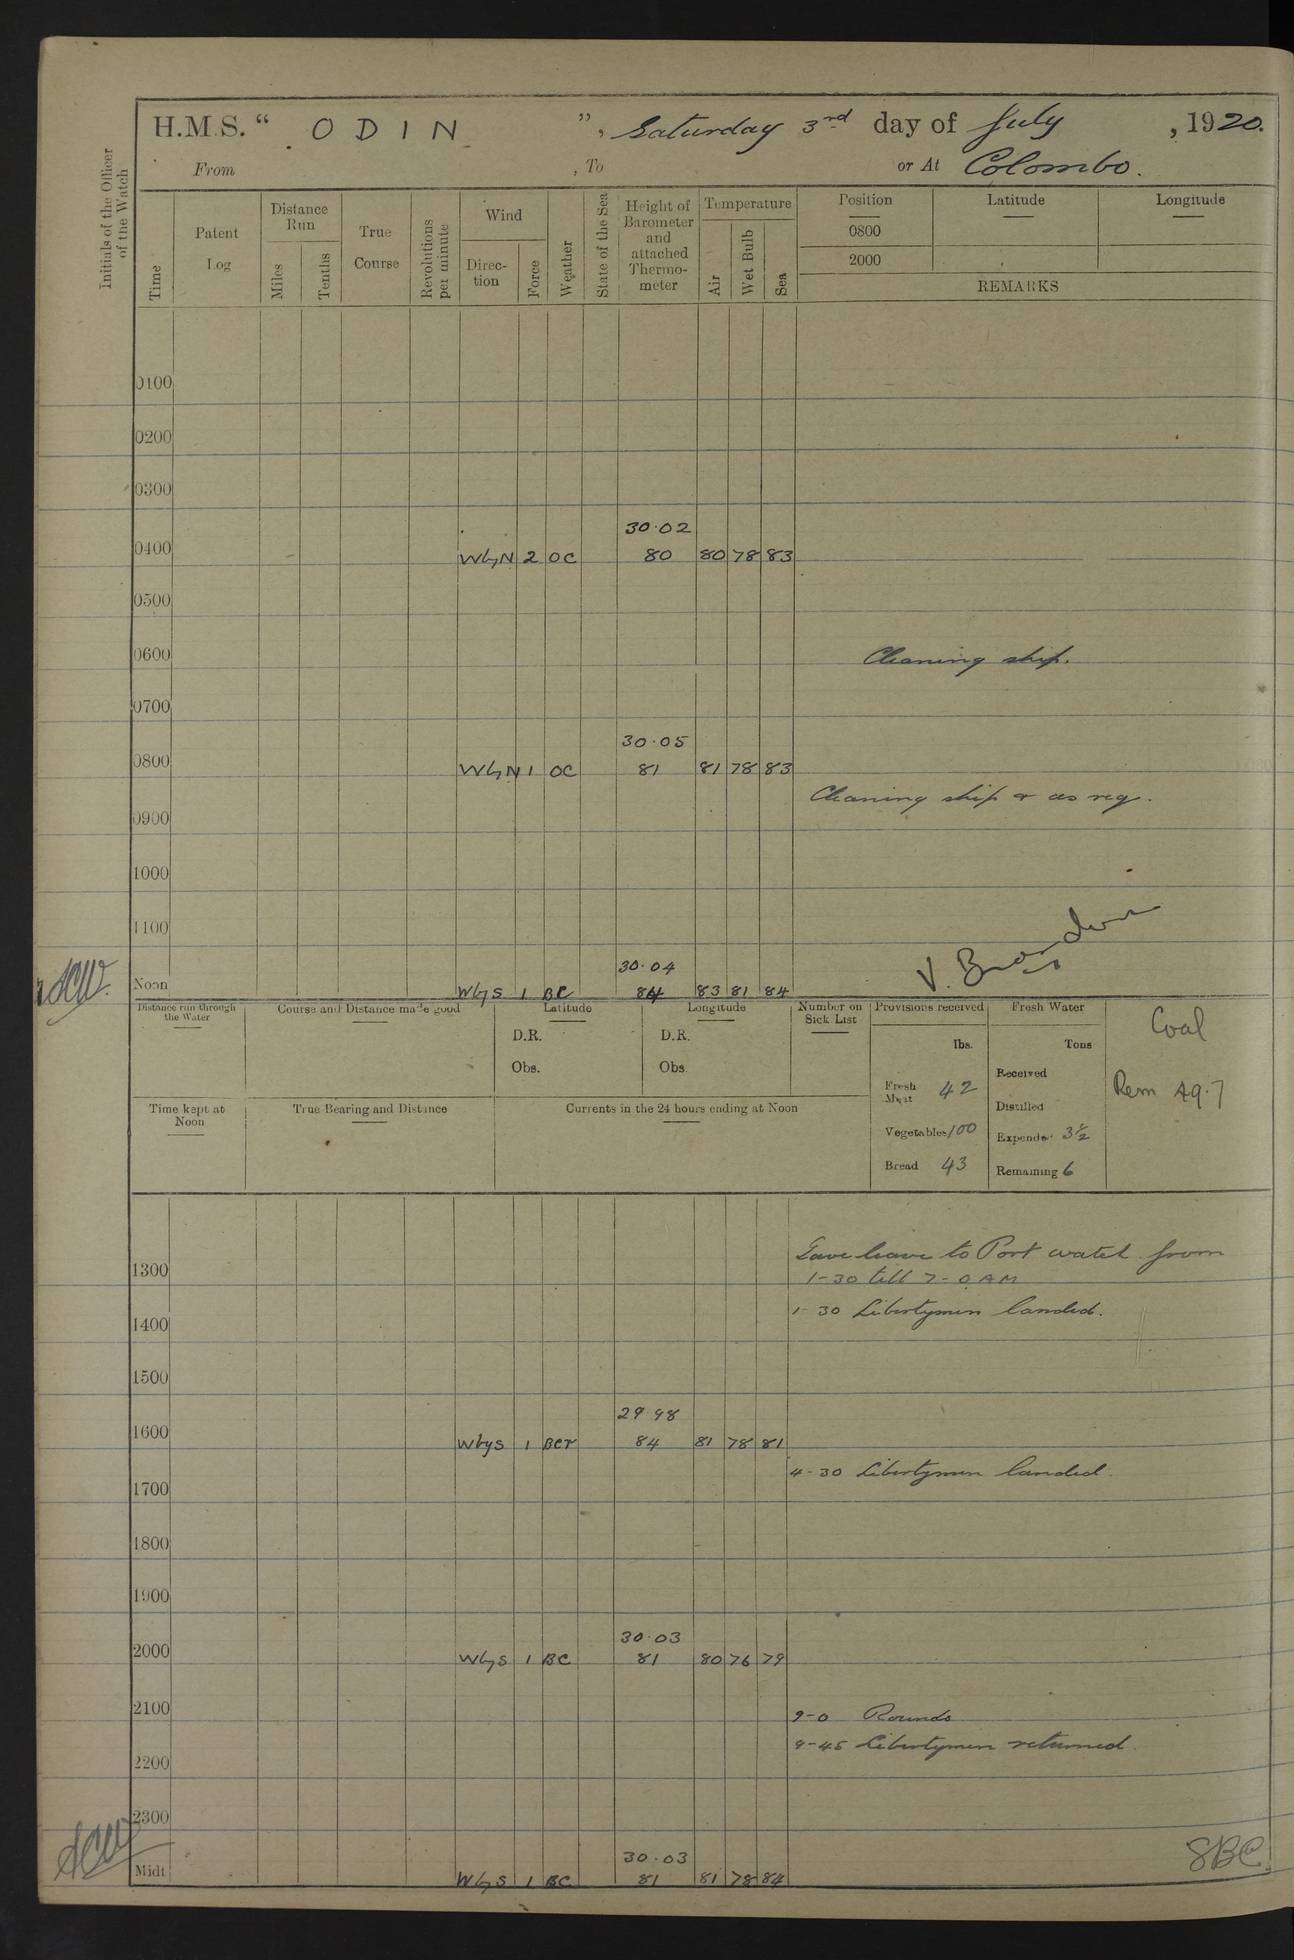 H.M.S. “ ODIN ”, Saturday 3rd day of July, 1920.
From , To or At Colombo.
Initials of the Officer of the Watch
Time
Patent Log
Distance Run
Miles
Tenths
True Course
Revolutions per minute
Wind
Direc-tion
Force
Weather
State of the Sea
Height of Barometer and attached Thermo-meter
Temperature
Air
Wet Bulb
Sea
Position Latitude Longitude
0800
2000
REMARKS
0100
0200
0300
30.02
0400 WbyN 2 OC 80 80 78 83
0500
0600 Cleaning ship.
0700
30.05
0800 WbyN 1 OC 81 81 78 83
Cleaning ship & as req.
0900
1000
1100
V. B
30.04
Noon WbyS 1 BC 84 83 81 84
Distance run through the Water
Course and Distance made good
Latitude
D.R.
Obs.
Longitude
D.R.
Obs.
Number on Sick List
Provisions received
lbs.
Fresh Meat 42
Vegetables 100
Bread 43
Fresh Water
Tons
Received
Distilled
Expended 3½
Remaining 6
Coal
Rem 49.7
Time kept at Noon
True Bearing and Distance
Currents in the 24 hours ending at Noon
Gave leave to Port watch from
1300 1-30 till 7-0 AM
1-30 Libertymen landed.
1400
1500
29.98
1600 WbyS 1 BCr 84 81 78 81
4-30 Libertymen landed.
1700
1800
1900
30.03
2000 WbyS 1 BC 81 80 76 79
2100 9-0 Rounds
9-45 Libertymen returned.
2200
2300
30.03
Midt WbyS 1 BC 81 81 78 84